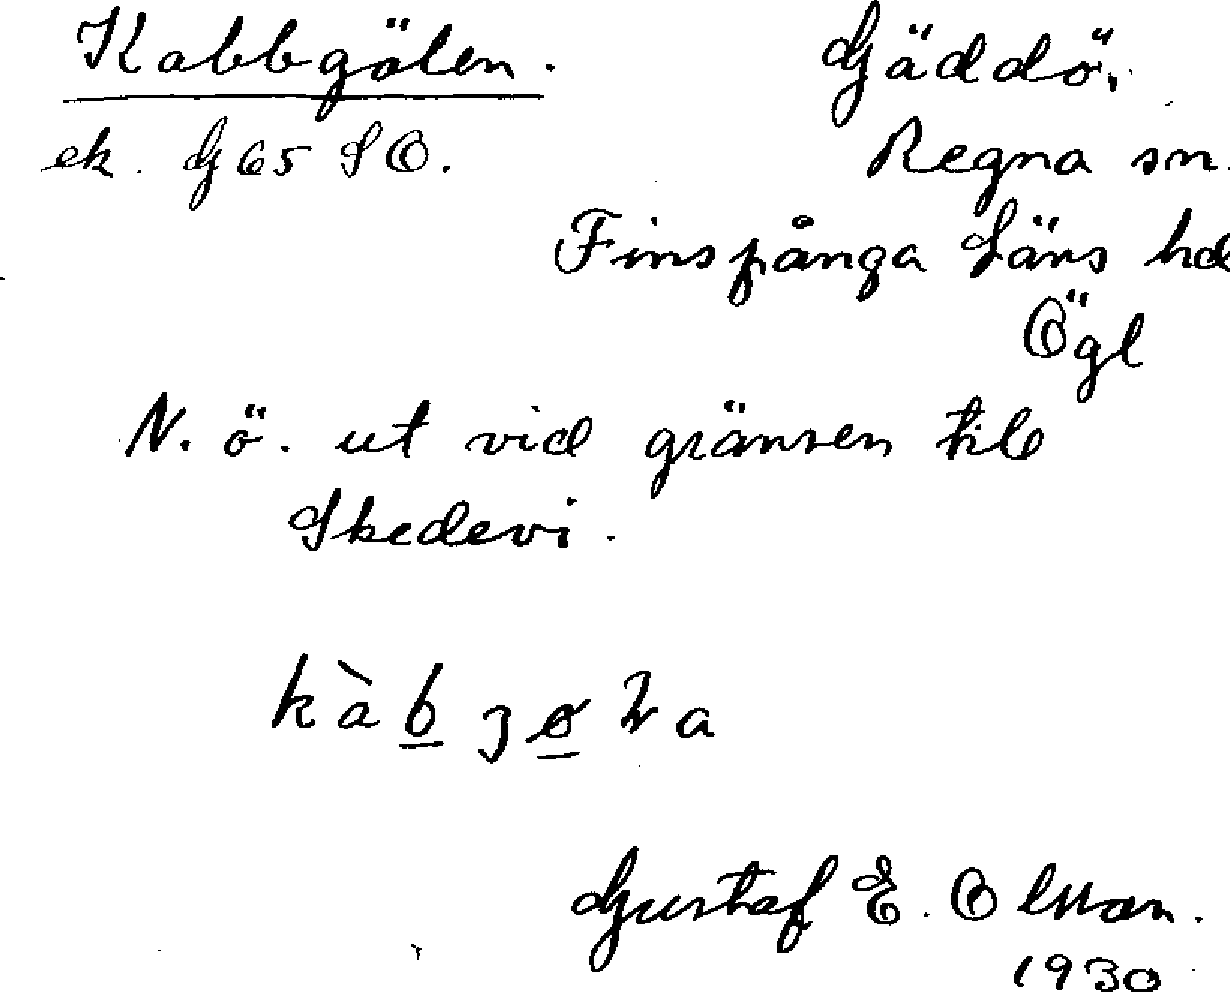 Kabbgölen. Gäddö,
ek. G 65 SO. Regna sn.
Finspånga Läns hd
Ögl
N. ö. ut vid gränsen till
Skedevi.
kàb̲ jø̲ɫa
Gustaf E. Olsson.
1930